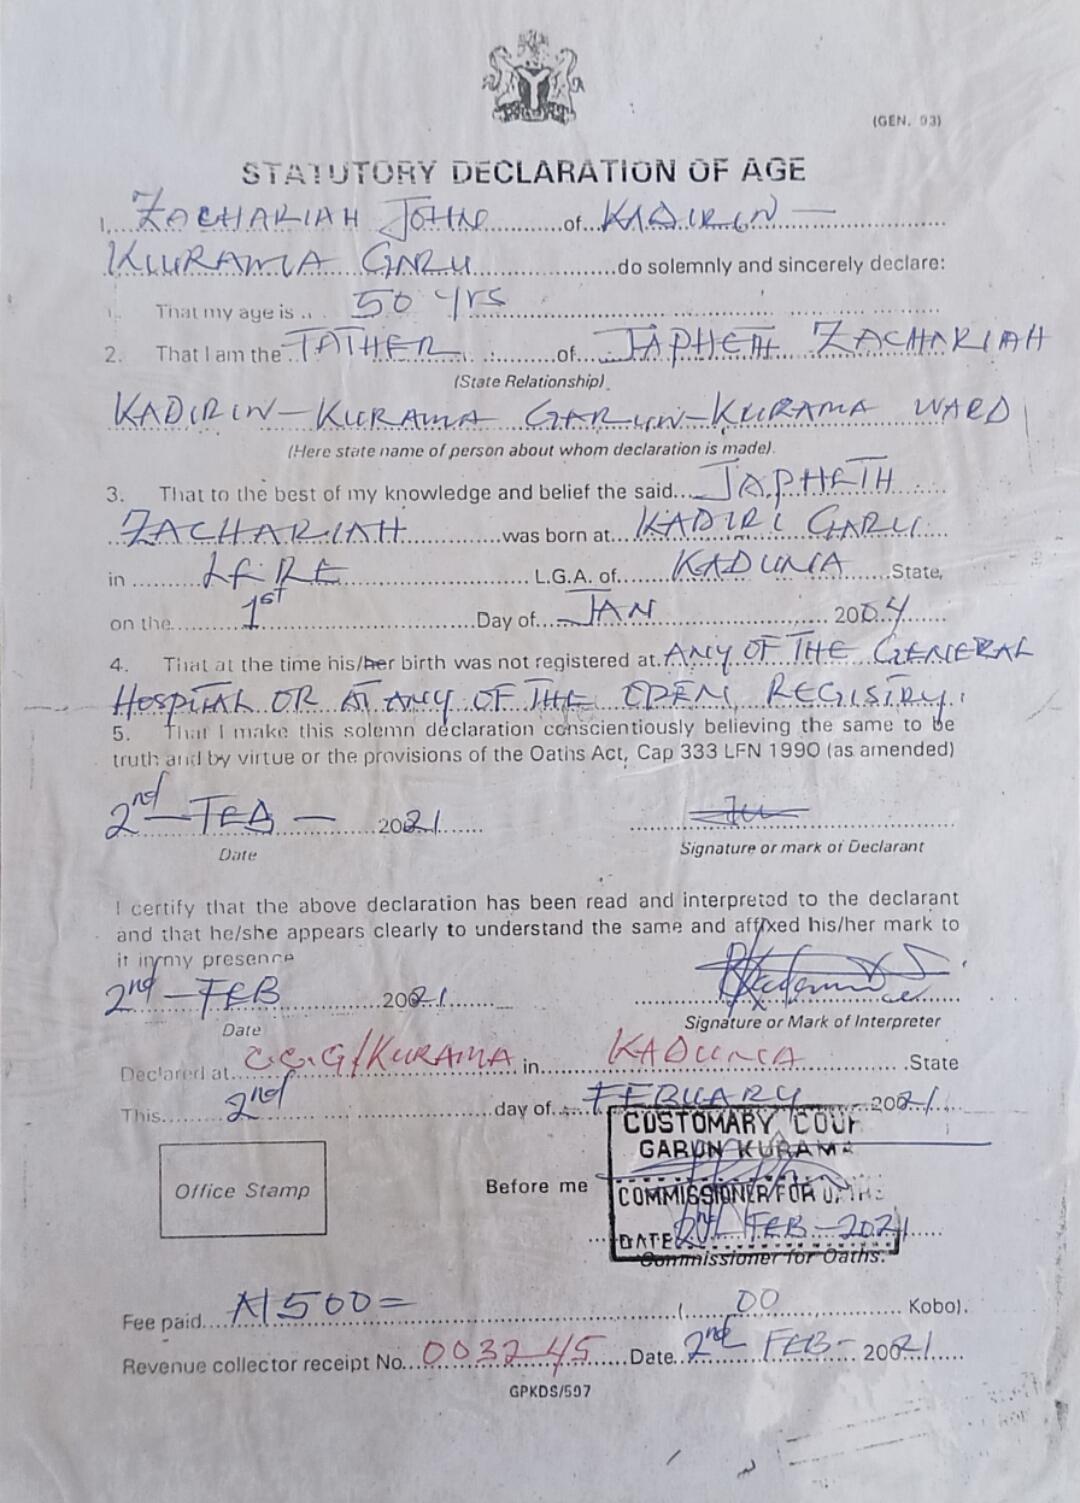 (GEN. 03)
STATUTORY DECLARATION OF AGE
I, ZACHARIAH JOHN of KADIRIN —
KUURAMA GARU do solemnly and sincerely declare:
1. That my age is 50 yrs
2. That I am the FATHER of JAPHETH ZACHARIAH
(State Relationship)
KADIRIN - KURAMA GARUN - KURAMA WARD
(Here state name of person about whom declaration is made).
3. That to the best of my knowledge and belief the said JAPHETH
ZACHARIAH was born at KADIRI GARU
in LERE L.G.A. of KADUNA State,
on the 1st Day of JAN 2004
4. That at the time his/her birth was not registered at ANY OF THE GENERAL
HOSPITAL OR AT ANY OF THE OPEN REGISTRY.
5. That I make this solemn declaration conscientiously believing the same to be
truth and by virtue or the provisions of the Oaths Act, Cap 333 LFN 1990 (as amended)
2nd — FEB — 2021
Date
Signature or mark of Declarant
I certify that the above declaration has been read and interpreted to the declarant
and that he/she appears clearly to understand the same and affixed his/her mark to
it in my presence
2nd — FEB 2021
Date
Signature or Mark of Interpreter
Declared at C.C.G/KURAMA in KADUNA State
This 2nd day of FEBUARY 2021
CUSTOMARY COUR
GARUN KURAMA
Office Stamp
Before me
COMMISSIONER FOR OATHS
DATE 2nd FEB - 2021
Commissioner for Oaths.
Fee paid ₦1500= ( 00 Kobo).
Revenue collector receipt No. 003245 Date 2nd FEB - 2021
GPKDS/597